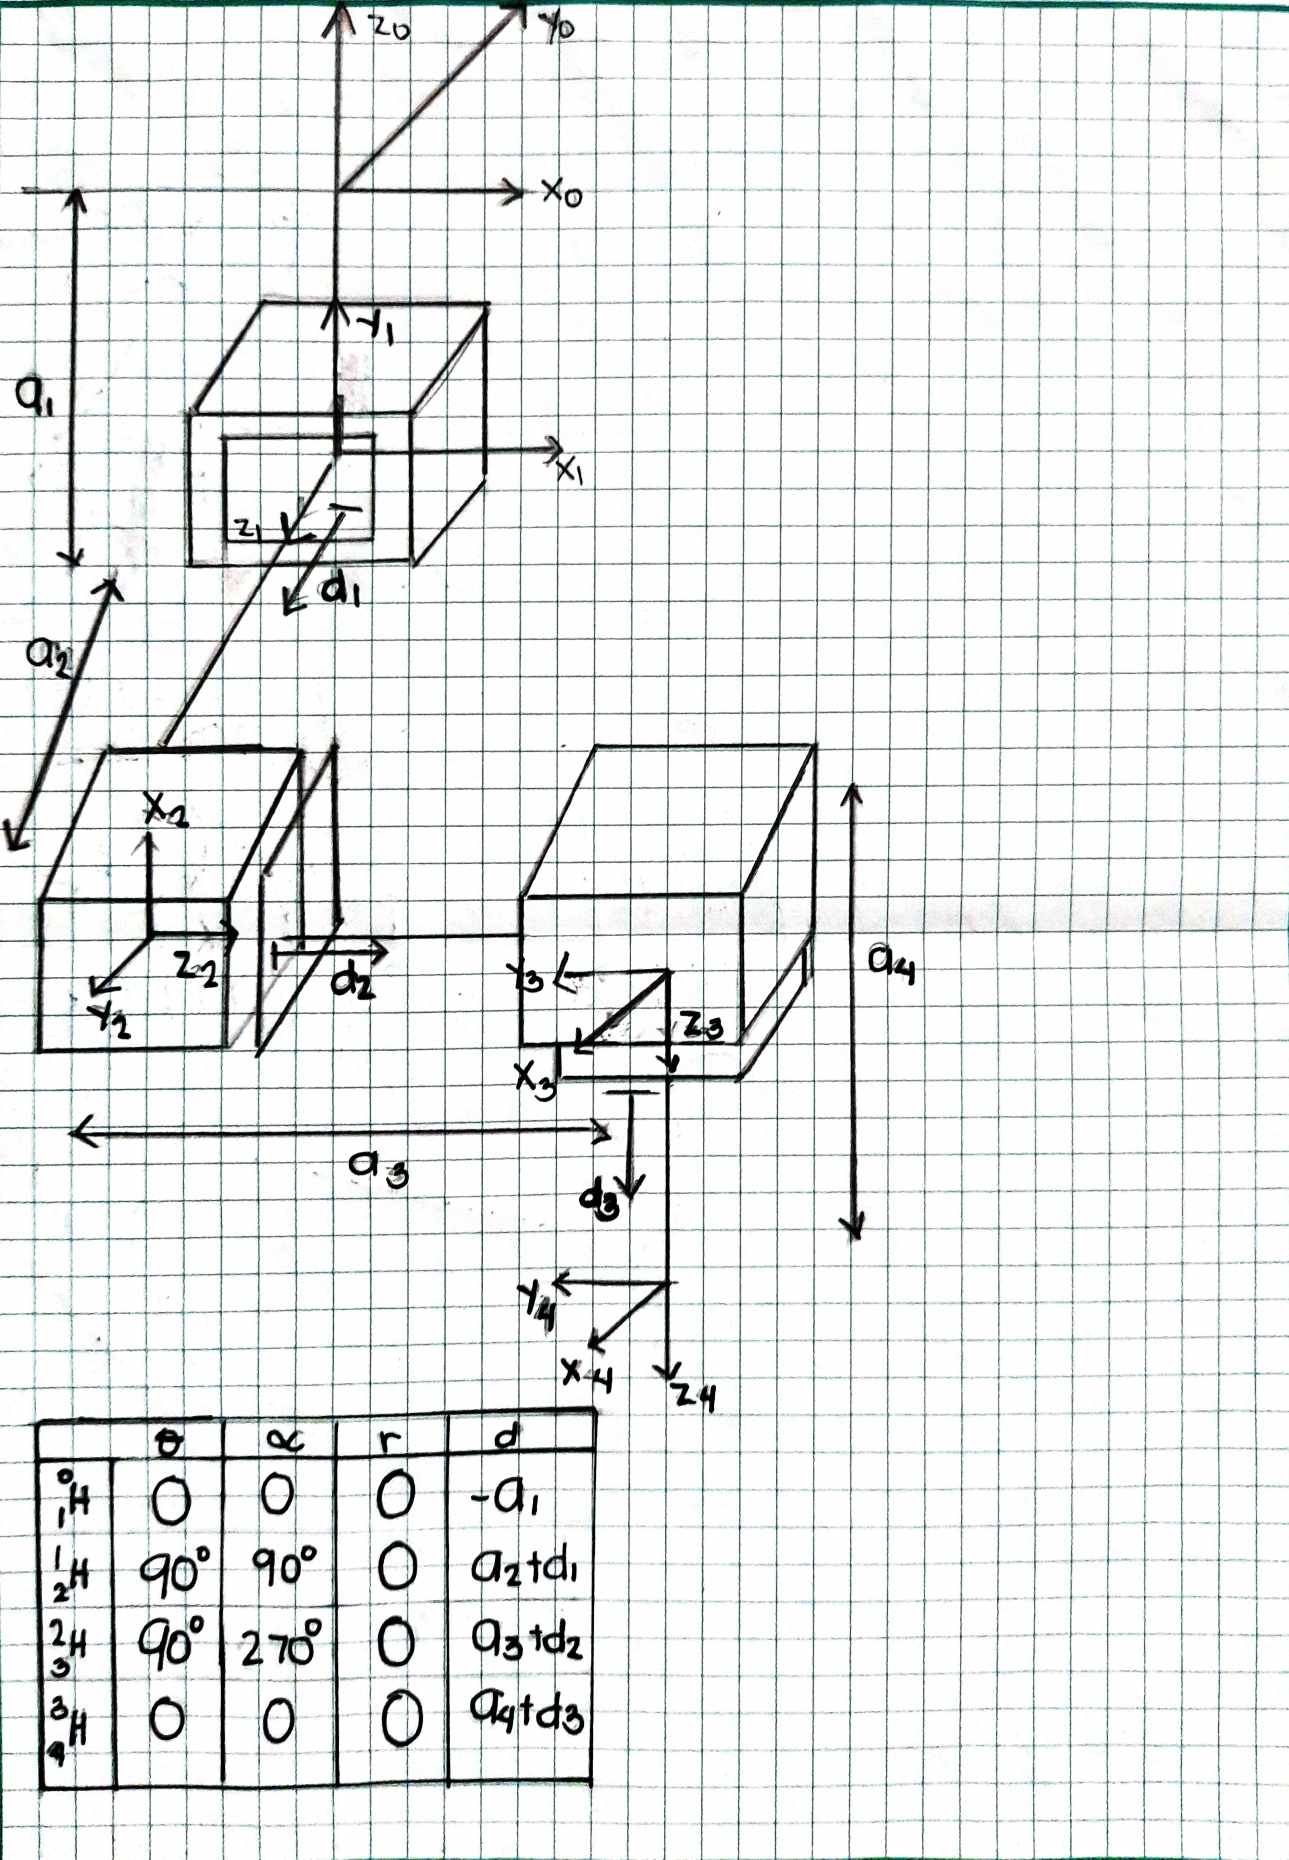 z0 y0
x0
y1
a1
x1
z1
d1
a2
x2
z2
y2
d2
y3
z3
x3
a4
a3
d3
y4
x4
z4
θ α r d
⁰₁H 0 0 0 -a1
¹₂H 90° 90° 0 a2+d1
²₃H 90° 270° 0 a3+d2
³₄H 0 0 0 a4+d3